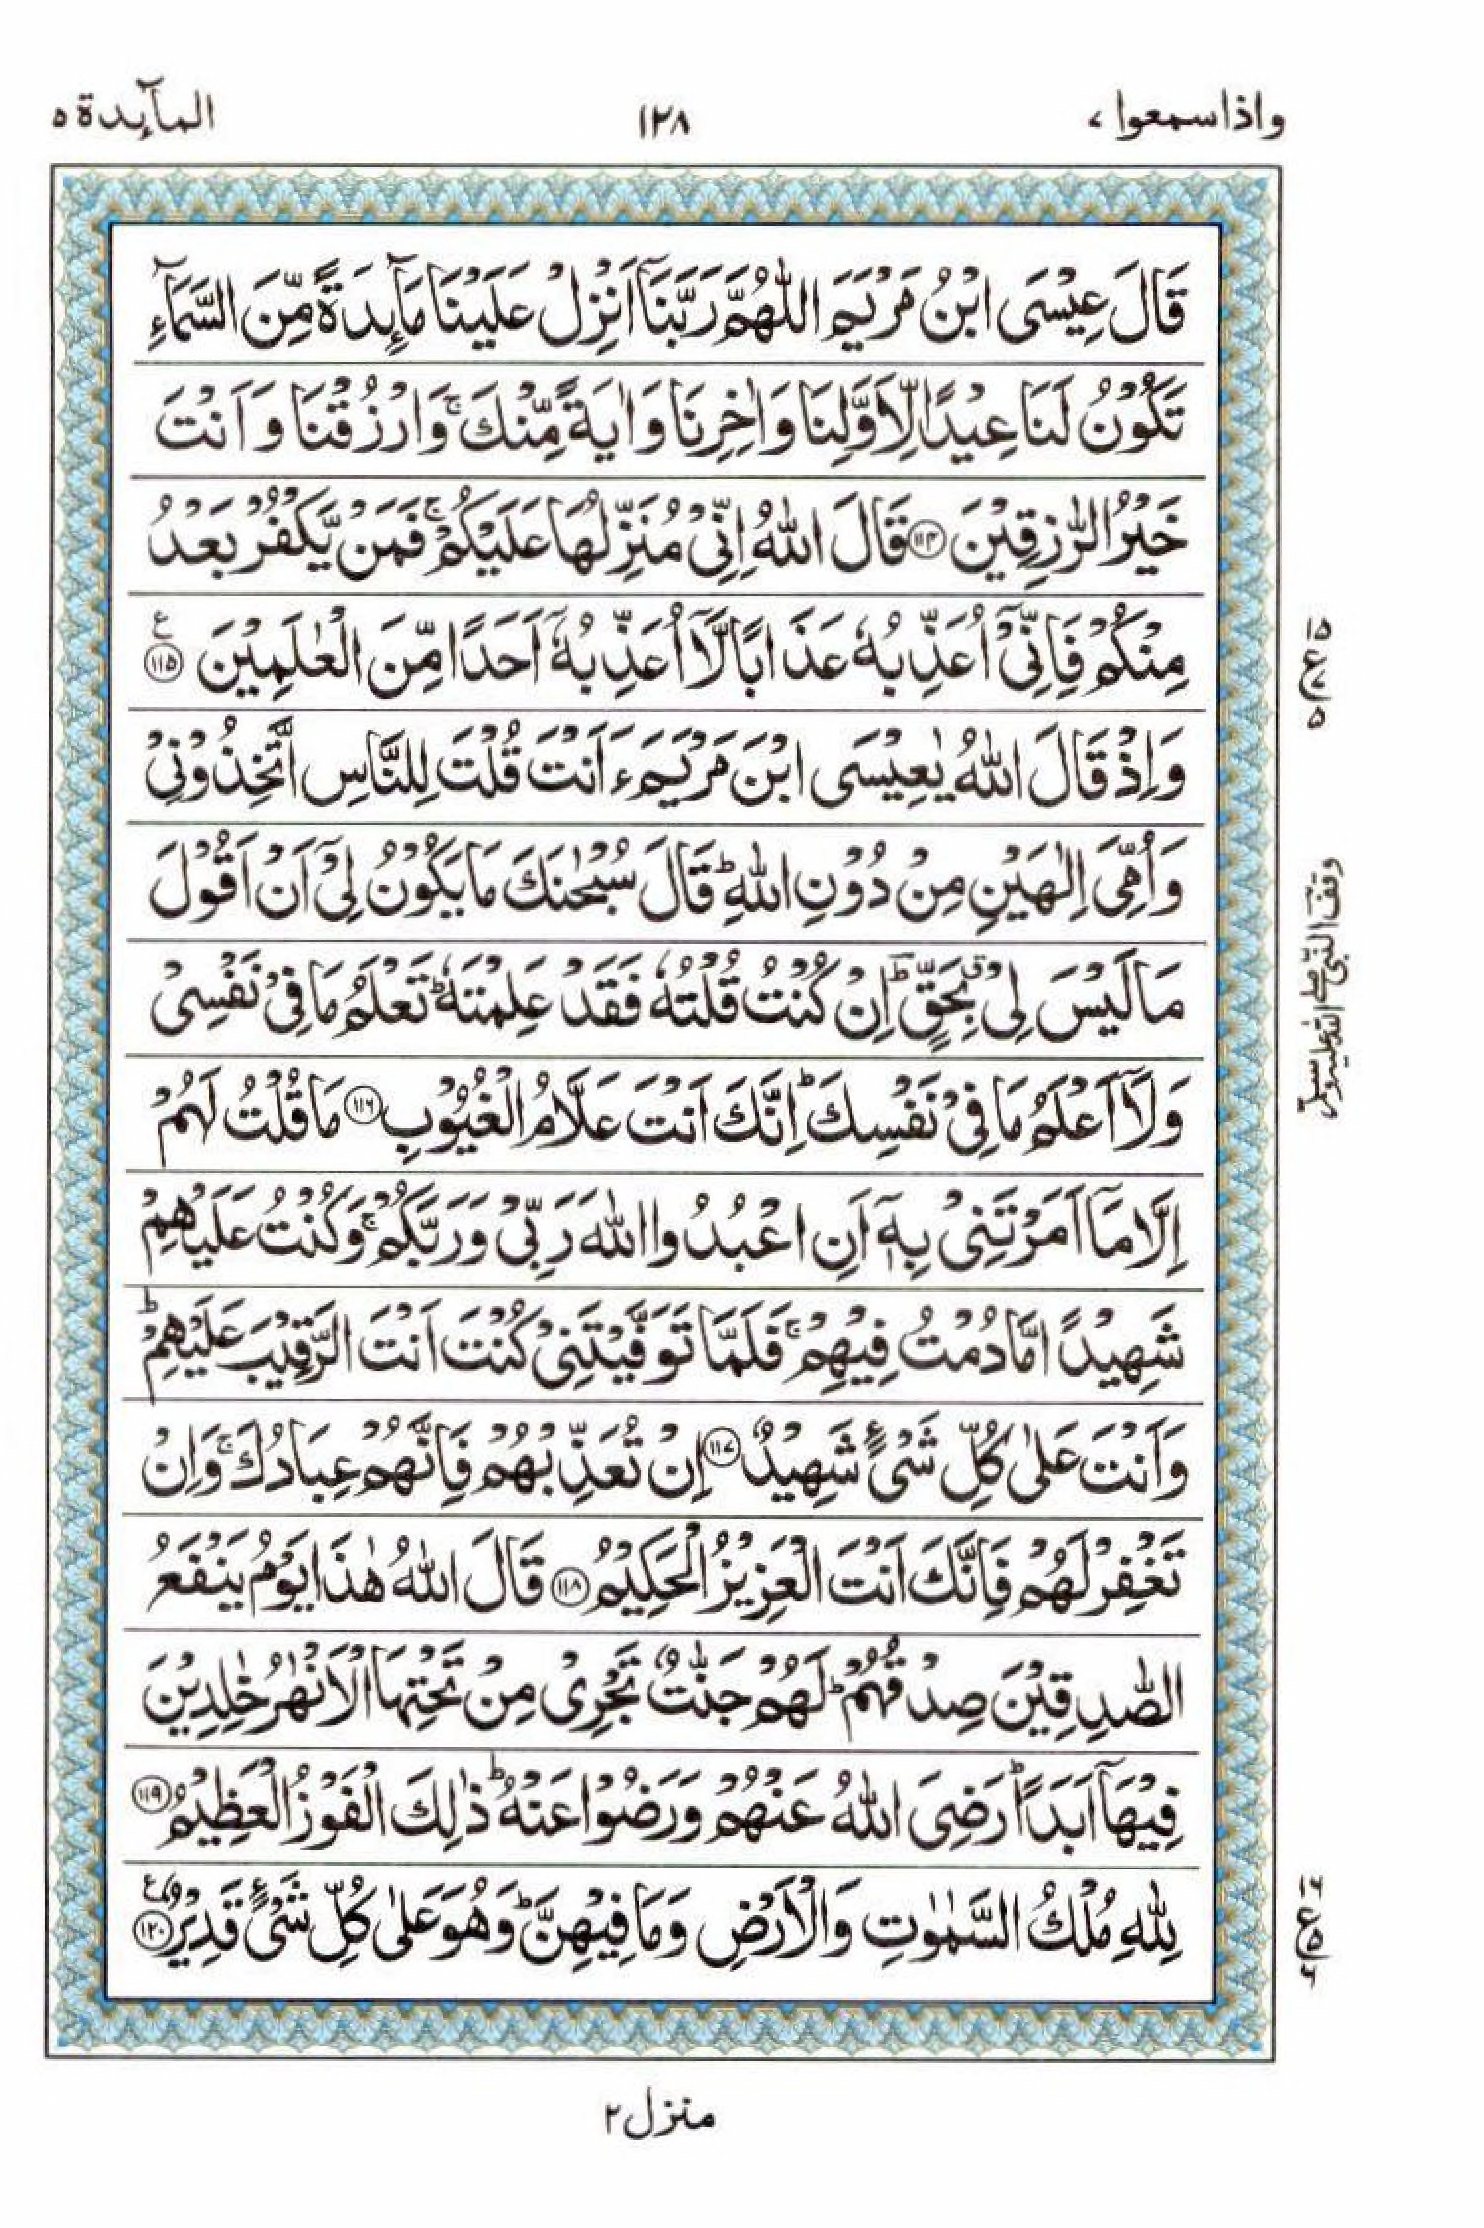 واذاسمعوا ۷
۱۲۸
المآىِٕدة ۵
قَالَ عِيْسَى ابْنُ مَرْيَمَ اللّٰهُمَّ رَبَّنَاۤ اَنْزِلْ عَلَيْنَا مَآىِٕدَةً مِّنَ السَّمَآءِ
تَكُوْنُ لَنَا عِيْدًا لِّاَوَّلِنَا وَاٰخِرِنَا وَاٰيَةً مِّنْكَ ۚ وَارْزُقْنَا وَاَنْتَ
خَيْرُ الرّٰزِقِيْنَ ﴿۱۱۴﴾ قَالَ اللّٰهُ اِنِّيْ مُنَزِّلُهَا عَلَيْكُمْ ۚ فَمَنْ يَّكْفُرْ بَعْدُ
مِنْكُمْ فَاِنِّيْۤ اُعَذِّبُهٗ عَذَابًا لَّاۤ اُعَذِّبُهٗۤ اَحَدًا مِّنَ الْعٰلَمِيْنَ ﴿۱۱۵﴾ ع
وَاِذْ قَالَ اللّٰهُ يٰعِيْسَى ابْنَ مَرْيَمَ ءَاَنْتَ قُلْتَ لِلنَّاسِ اتَّخِذُوْنِيْ
وَاُمِّيَ اِلٰهَيْنِ مِنْ دُوْنِ اللّٰهِ ؕ قَالَ سُبْحٰنَكَ مَا يَكُوْنُ لِيْۤ اَنْ اَقُوْلَ
مَا لَيْسَ لِيْ ۗ بِحَقٍّ ؕ اِنْ كُنْتُ قُلْتُهٗ فَقَدْ عَلِمْتَهٗ ؕ تَعْلَمُ مَا فِيْ نَفْسِيْ
وَلَاۤ اَعْلَمُ مَا فِيْ نَفْسِكَ ؕ اِنَّكَ اَنْتَ عَلَّامُ الْغُيُوْبِ ﴿۱۱۶﴾ مَا قُلْتُ لَهُمْ
اِلَّا مَاۤ اَمَرْتَنِيْ بِهٖۤ اَنِ اعْبُدُوا اللّٰهَ رَبِّيْ وَرَبَّكُمْ ۚ وَكُنْتُ عَلَيْهِمْ
شَهِيْدًا مَّا دُمْتُ فِيْهِمْ ۚ فَلَمَّا تَوَفَّيْتَنِيْ كُنْتَ اَنْتَ الرَّقِيْبَ عَلَيْهِمْ ؕ
وَاَنْتَ عَلٰى كُلِّ شَيْءٍ شَهِيْدٌ ﴿۱۱۷﴾ اِنْ تُعَذِّبْهُمْ فَاِنَّهُمْ عِبَادُكَ ۚ وَاِنْ
تَغْفِرْ لَهُمْ فَاِنَّكَ اَنْتَ الْعَزِيْزُ الْحَكِيْمُ ﴿۱۱۸﴾ قَالَ اللّٰهُ هٰذَا يَوْمُ يَنْفَعُ
الصّٰدِقِيْنَ صِدْقُهُمْ ؕ لَهُمْ جَنّٰتٌ تَجْرِيْ مِنْ تَحْتِهَا الْاَنْهٰرُ خٰلِدِيْنَ
فِيْهَاۤ اَبَدًا ؕ رَضِيَ اللّٰهُ عَنْهُمْ وَرَضُوْا عَنْهُ ؕ ذٰلِكَ الْفَوْزُ الْعَظِيْمُ ﴿۱۱۹﴾
لِلّٰهِ مُلْكُ السَّمٰوٰتِ وَالْاَرْضِ وَمَا فِيْهِنَّ ؕ وَهُوَ عَلٰى كُلِّ شَيْءٍ قَدِيْرٌ ﴿۱۲۰﴾ ع
۱۵
ع ۷
۵
وقف النبی صلی اللہ علیہ وسلم
۱۶
ع ۵
۶
منزل ۲